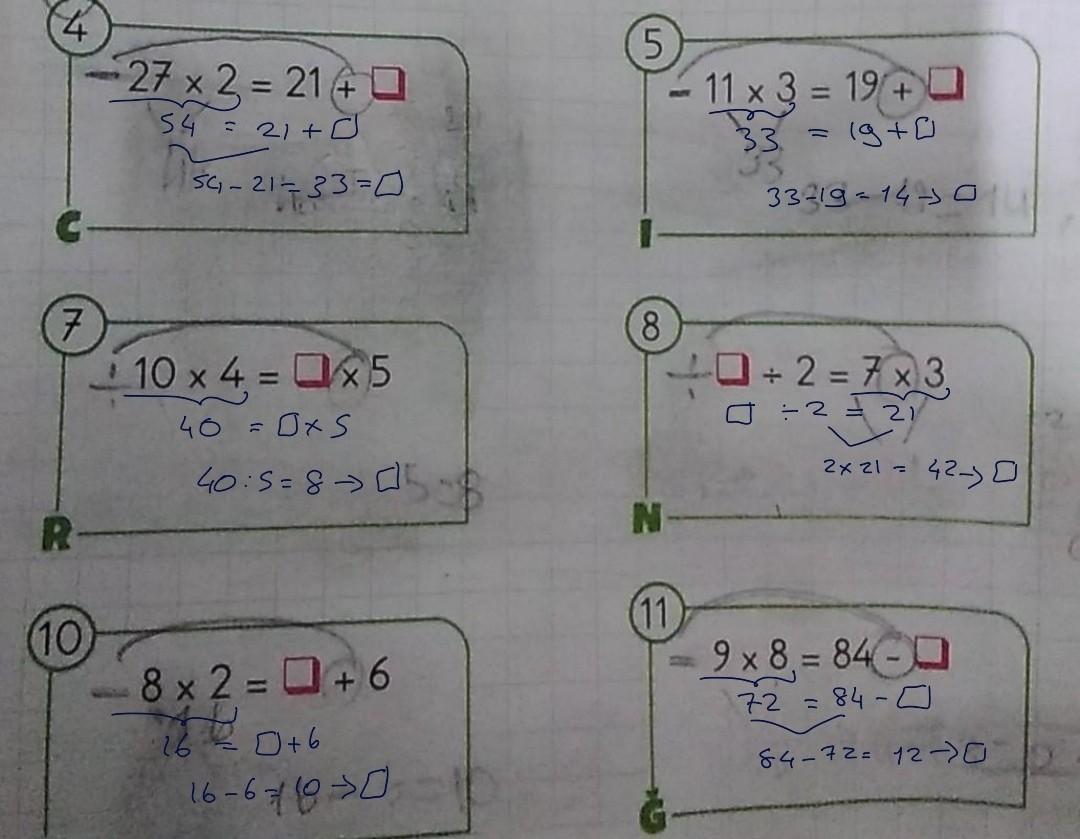 4
- 27 x 2 = 21 + □
54 = 21 + □
54 - 21 = 33 = □
C
5
- 11 x 3 = 19 + □
33 = 19 + □
33 - 19 = 14 → □
I
7
÷ 10 x 4 = □ x 5
40 = □ x 5
40 : 5 = 8 → □
R
8
÷ □ ÷ 2 = 7 x 3
□ ÷ 2 = 21
2 x 21 = 42 → □
N
10
- 8 x 2 = □ + 6
16 = □ + 6
16 - 6 = 10 → □
11
- 9 x 8 = 84 - □
72 = 84 - □
84 - 72 = 12 → □
Ğ